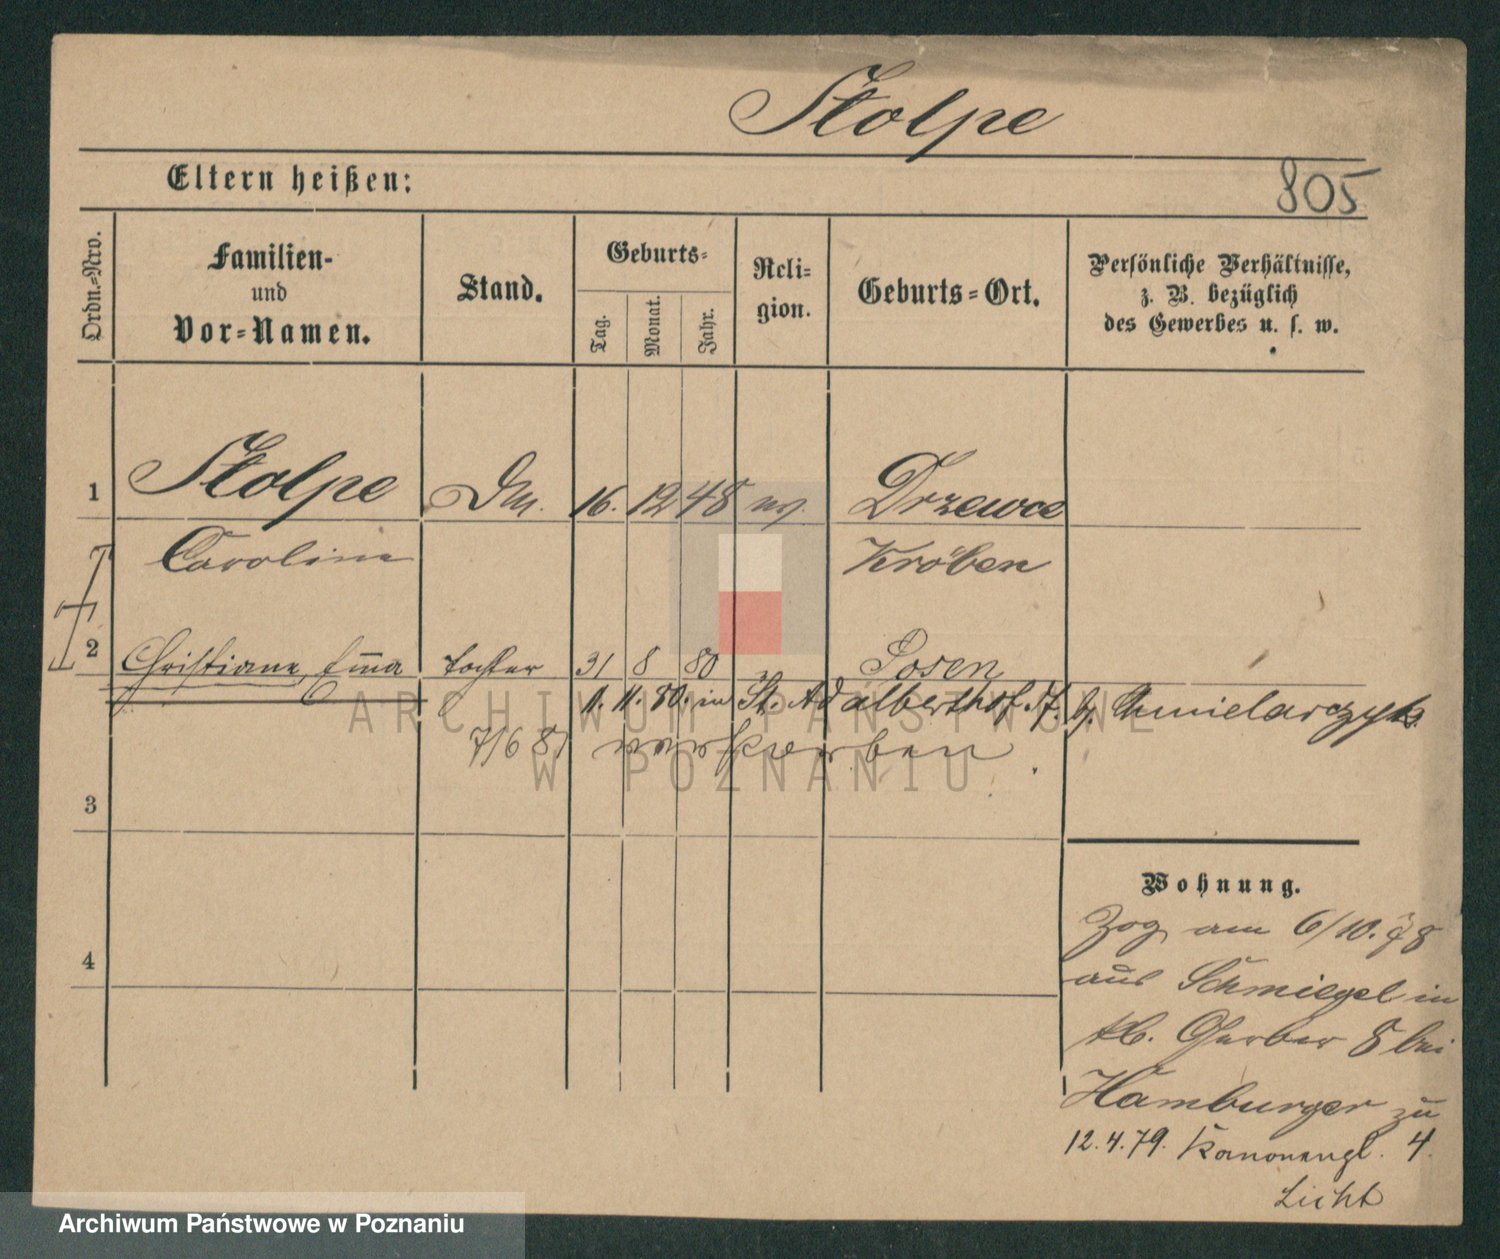 Stolpe
Eltern heißen:
805
Ordn.-Nro.
Familien-
und
Vor-Namen.
Stand.
Geburts-
Tag.
Monat.
Jahr.
Reli-
gion.
Geburts-Ort.
Persönliche Verhältnisse,
z. B. bezüglich
des Gewerbes u. s. w.
1
Stolpe
16. 12 48
Drzewce
Caroline
Kröben
2
Christiane, Emma
Tochter
31 8 80
Posen
11. 11. 80. in St. Adalberthof. 7. b. Chmielarczyk.
7/6 81
3
4
Wohnung.
Zog am 6/10. 78
aus Schmiegel in
Gerber 8 bei
Hamburger zu
12.4.79. Kanonengl. 4.
Licht
ARCHIWUM PAŃSTWOWE
W POZNANIU
Archiwum Państwowe w Poznaniu